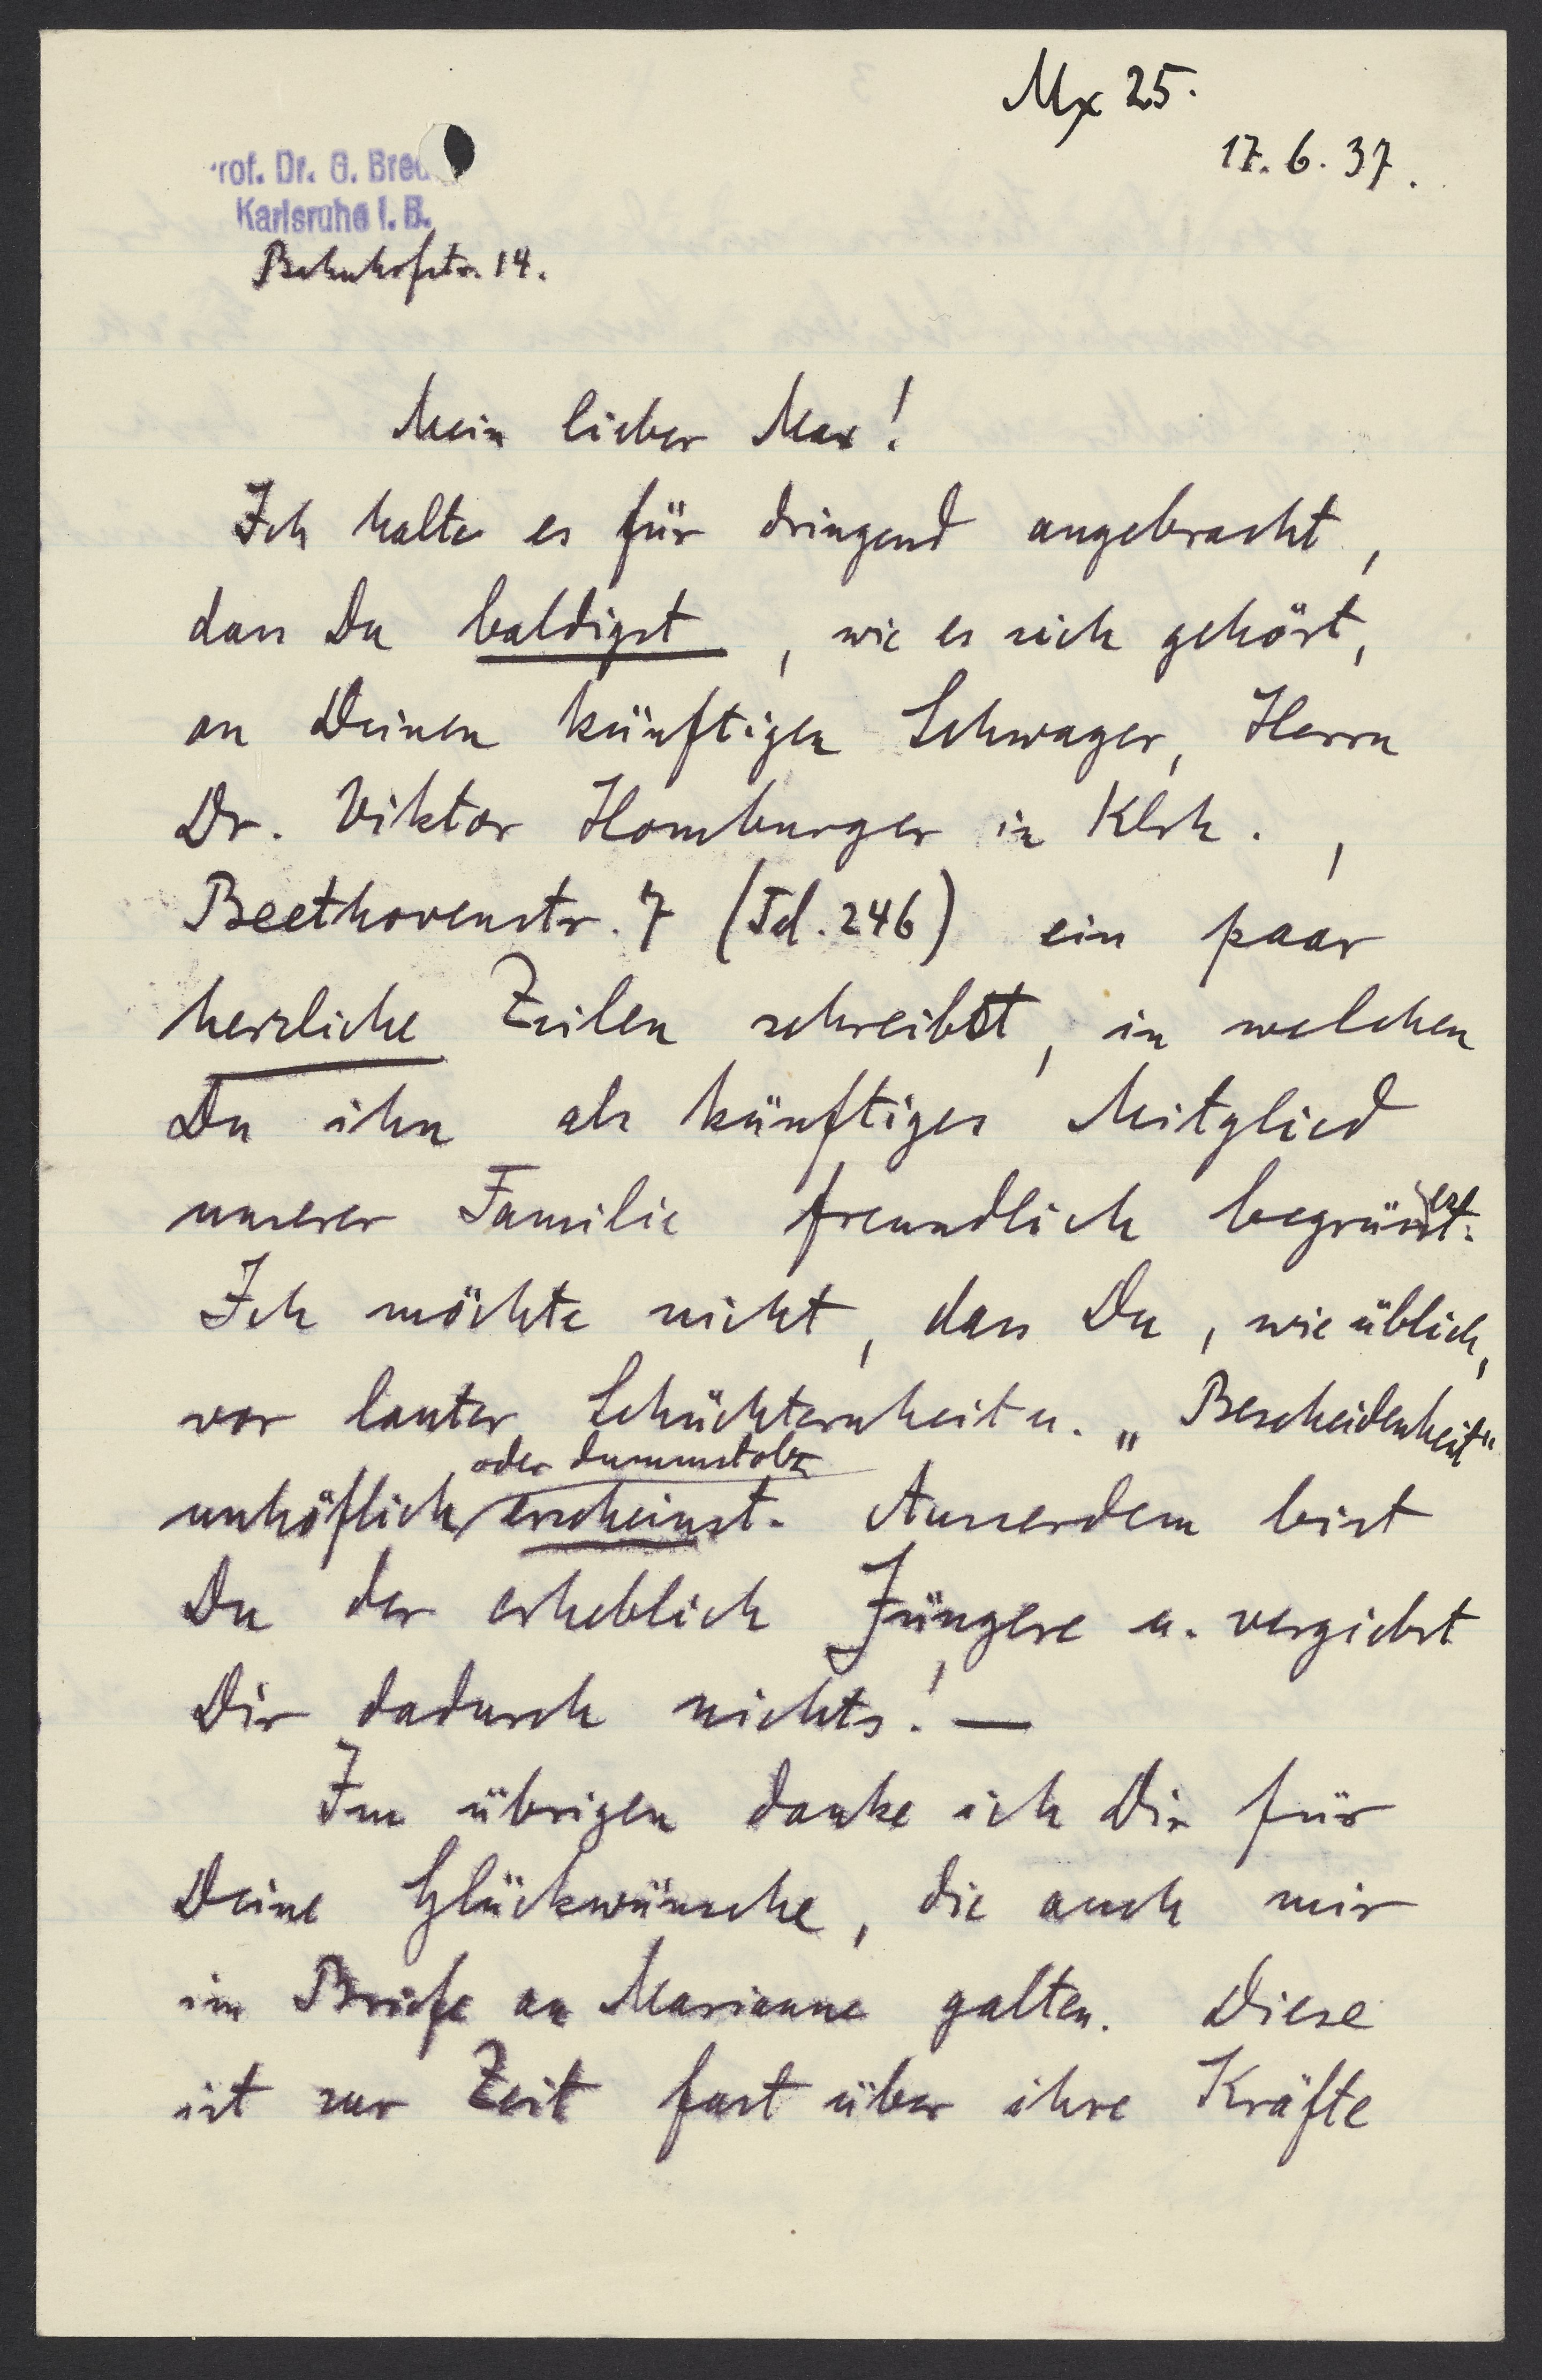 Mx 25.
17.6.37.
rof. Dr. G. Bred
Karlsruhe i. B.
Bahnhofstr. 14.
Mein lieber Max!
Ich halte es für dringend angebracht,
dass Du baldigst, wie es sich gehört,
an Deinen künftigen Schwager, Herrn
Dr. Viktor Homburger in Klrh.,
Beethovenstr. 7 (Tel. 246) ein paar
herzliche Zeilen schreibst, in welchen
Du ihn als künftiges Mitglied
unserer Familie freundlich begrüssest.
Ich möchte nicht, dass Du, wie üblich,
vor lauter Schüchternheit u. „Bescheidenheit"
oder dummstolz
unhöflich erscheinst. Ausserdem bist
Du der erheblich Jüngere u. vergiebst
Dir dadurch nichts! —
Im übrigen danke ich Dir für
Deine Glückwünsche, die auch mir
im Briefe an Marianne galten. Diese
ist zur Zeit fast über ihre Kräfte